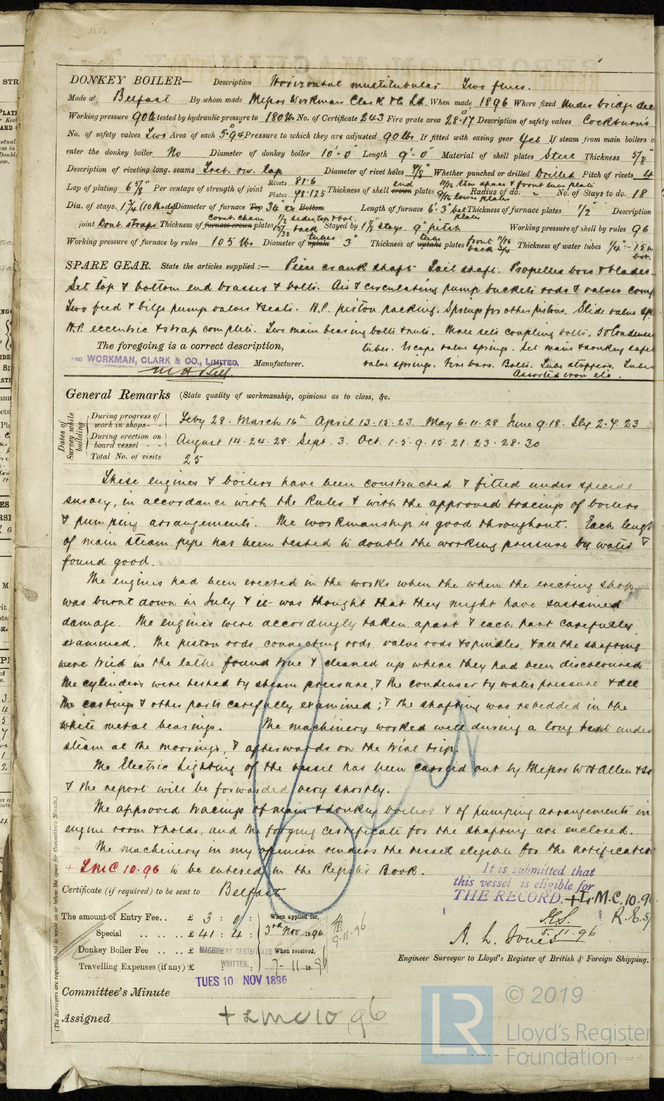 DONKEY BOILER— Description Horizontal multitubular Two flues.
Made at Belfast By whom made Messrs Workman Clark & Co Ld. When made 1896 Where fixed Under bridge dec
Working pressure 90 lb tested by hydraulic pressure to 180 lb No. of Certificate 243 Fire grate area 28.17 Description of safety valves Cockburn's
No. of safety valves Two Area of each 5.94 Pressure to which they are adjusted 90 lb. If fitted with easing gear Yes If steam from main boilers c
enter the donkey boiler No Diameter of donkey boiler 10'-0" Length 9'-0" Material of shell plates Steel Thickness 5/8
Description of riveting long. seams Treb. riv. lap Diameter of rivet holes Whether punched or drilled Drilled Pitch of rivets 4
Lap of plating 6 Per centage of strength of joint Rivets 81.6 Plates Thickness of end plates Radius of do. No. of Stays to do. 18
Dia. of stays. 1 3/4 Diameter of furnace Top 36" Bottom Length of furnace 6'.3" Thickness of furnace plates 1/2" Description
joint Doub. straps Thickness of comb. cham plates back Stayed by 1 1/8 stays 9" pitch Working pressure of shell by rules 96
Working pressure of furnace by rules 105 lb Diameter of tubes 3" Thickness of tube plates front back Thickness of water tubes 1/4"
SPARE GEAR. State the articles supplied :— Piece crank shaft. Tail shaft. Propeller boss & blades.
Set top & bottom end brasses & bolts. Air & circulating pump buckets rods & valves comp
Two feed & bilge pump valves & seats. H.P. piston packing. Springs for other pistons. Slide valve sp
H.P. eccentric & strap complete. Two main bearing bolts & nuts. Three sets coupling bolts. 50 Condense
The foregoing is a correct description, tubes. Escape valve springs. Set main & donkey safe
FOR WORKMAN, CLARK & CO., LIMITED, Manufacturer. valve springs. Fire bars. Bolts. Tube stoppers. Tubes
Assorted iron etc.
General Remarks (State quality of workmanship, opinions as to class, &c.
Dates of Survey while building
During progress of work in shops - - Feby 28. March 16th April 13.15.23 May 6.11.28 June 9.18. Jly 2.7.23
During erection on board vessel - - - August 14.24.28 Sept. 3. Oct. 1.5.9.15.21.23.28.30
Total No. of visits 25
These engines & boilers have been constructed & fitted under special
survey, in accordance with the Rules & with the approved tracings of boilers
& pumping arrangements. The workmanship is good throughout. Each lengt
of main steam pipe has been tested to double the working pressure by water &
found good.
The engines had been erected in the works when the when the erecting shop
was burnt down in July & it was thought that they might have sustained
damage. The engines were accordingly taken apart & each part carefully
examined. The piston rods, connecting rods, valve rods & spindles, & all the shafting
were tried in the lathe found true & cleaned up where they had been discoloured
The cylinders were tested by steam pressure, & the condenser by water pressure & all
the castings & other parts carefully examined ; & the shafting was rebedded in the
white metal bearings. The machinery worked well during a long test under
steam at the moorings, & afterwards on the trial trip.
The Electric Lighting of the vessel has been carried out by Messrs W H Allen & So
& the report will be forwarded very shortly.
The approved tracings of main & donkey boilers & of pumping arrangements in
engine room & holds, and the forging certificate for the shafting are enclosed.
The machinery in my opinion renders the vessel eligible for the Notification
+ LMC 10.96 to be entered in the Register Book.
It is submitted that
this vessel is eligible for
THE RECORD. + L.M.C. 10.96
Certificate (if required) to be sent to Belfast
The amount of Entry Fee.. £ 3 : 0 : When applied for,
Special .. .. .. .. £ 41 : 4 : 3rd Nov. 1896
5.11.96
9.11.96
Donkey Boiler Fee .. .. £ : : When received,
MACHINERY CERTIFICATE
WRITTEN.
Travelling Expenses (if any) £ : : 7-11-1896
A. L. Jones
Engineer Surveyor to Lloyd's Register of British & Foreign Shipping.
TUES 10 NOV 1896
Committee's Minute
Assigned + LMC 10.96
© 2019
LR
Lloyd's Register
Foundation